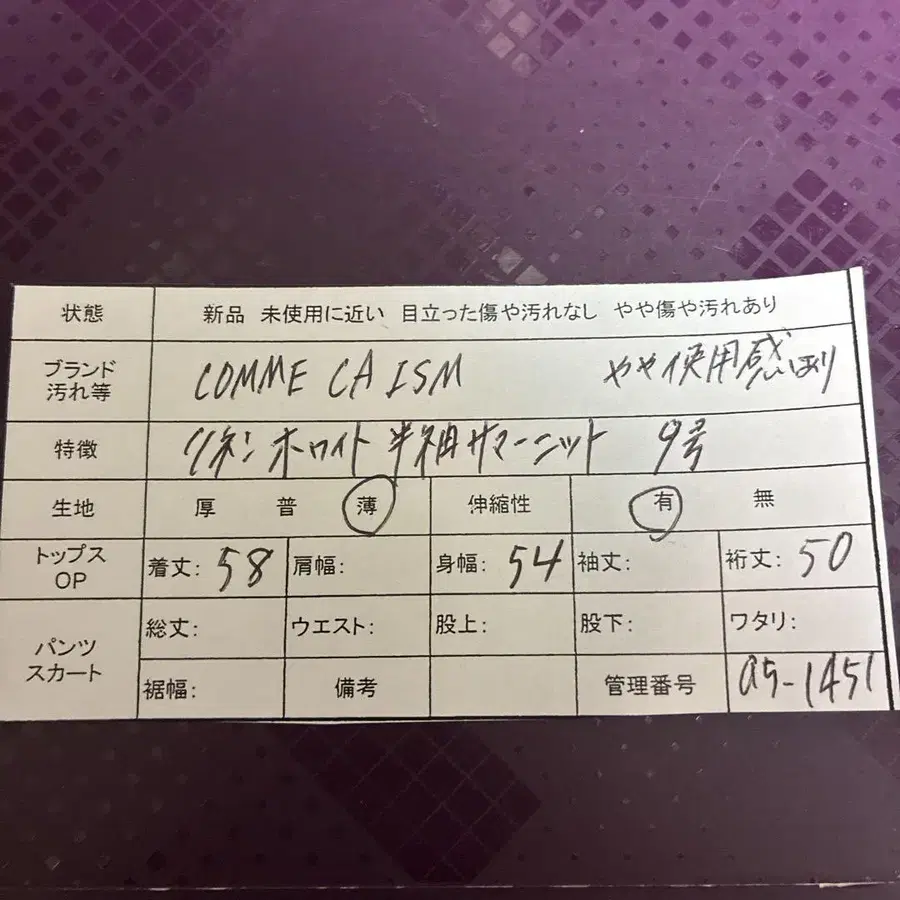 状態 新品 未使用に近い 目立った傷や汚れなし やや傷や汚れあり
ブランド 汚れ等 COMME CA ISM やや使用感あり
特徴 リネン ホワイト 半袖サマーニット 9号
生地 厚 普 薄 伸縮性 有 無
トップス OP 着丈: 58 肩幅: 身幅: 54 袖丈: 裄丈: 50
パンツ スカート 総丈: ウエスト: 股上: 股下: ワタリ:
裾幅: 備考 管理番号 a5-1451